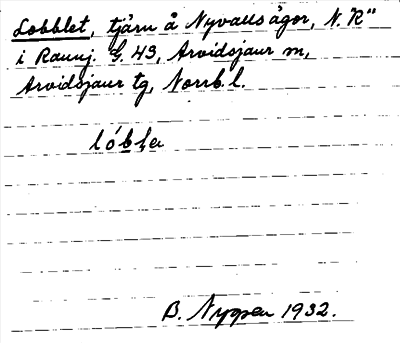 Lobblet, tjärn å Nyvalls ägor, N. R"
i Raunj. G. 43, Arvidsjaur sn,
Arvidsjaur tg, Norrb. l.
lóbla
B. Nyppen 1932.